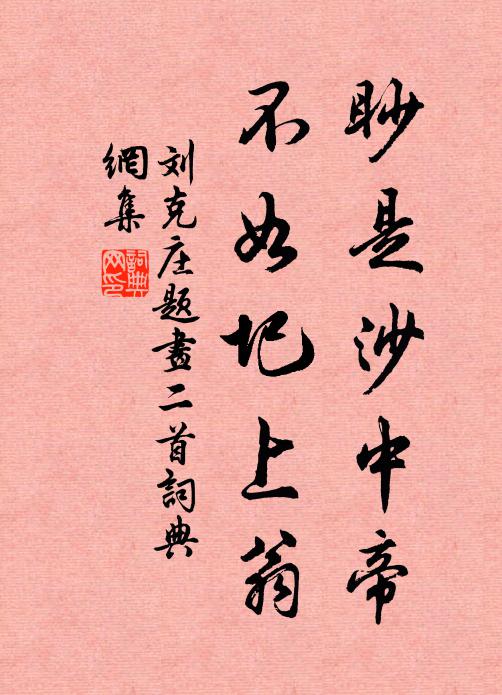 眇是沙中帝
不如圯上翁
刘克庄题畫二首詞典
網集
詞典
网印